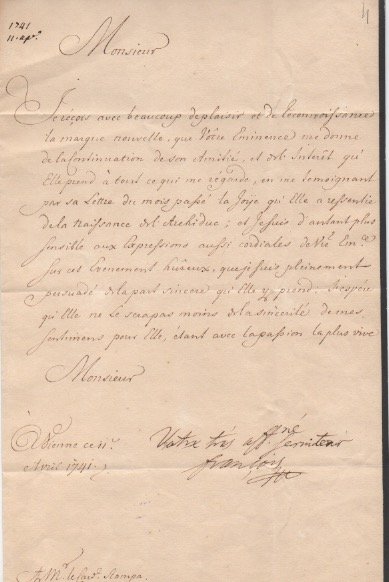 1741
11. apr.
Monsieur
Je reçois avec beaucoup de plaisir et de reconnaissance
la marque nouvelle, que Vôtre Eminence me donne
de la continuation de son Amitié, et de l'Interêt qu'
Elle prend à tout ce qui me regarde, en me temoignant
par sa Lettre du mois passé la Joye qu'Elle a ressentie
de la Naissance de l'Archiduc; et Je suis d'autant plus
sensible aux Expressions aussi cordiales de Vre Emce
sur cet Evenement heureux, que je suis pleinement
persuadé de la part sincere qu'Elle y prend: J'espere
qu'Elle ne le sera pas moins de la sincerité de mes
sentimens pour Elle, étant avec la passion la plus vive
Monsieur
A Vienne ce 11e
Avril 1741.
Votre trés affné serviteur
françois
A Mr le Card. Stampa.